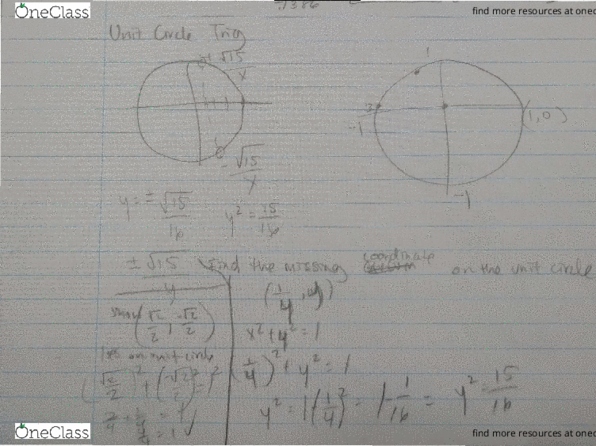 OneClass
find more resources at onec
Unit Circle Trig
1
√15
(1,0)
-1
-√15
-1
y = ± √15/16
y² = 15/16
± √15
Find the missing coordinate on the unit circle
(1/4, y)
(√2/2, -√2/2)
x² + y² = 1
is on unit circle
(√2/2)² + (-√2/2)² = 1²
(1/4)² + y² = 1
y² = 1 - (1/4)² = 1 - 1/16 = y² = 15/16
OneClass
find more resources at onec